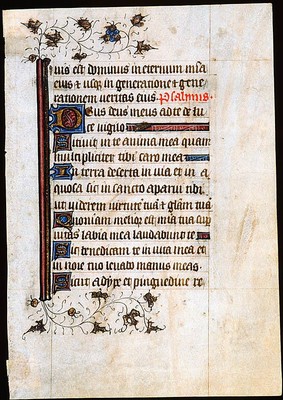 uis est dominus in eternum mīa
eius et usq; in generatione et gene
rationem veritas eius. Psalmus.
Deus deus meus ad te de lu
ce vigilo
Sitiuit in te anima mea quam
multipliciter tibi caro mea
In terra deserta in uia et in a
quosa sic in sancto aparui tibi
ut viderem uirtutē tuā et glām tuā
Quoniam melior est mīa tua sup
uitas labia mea laudabunt te
Sic benedicam te in uita mea et
in noīe tuo leuabo manus meas.
Sicut adype et pinguedine re